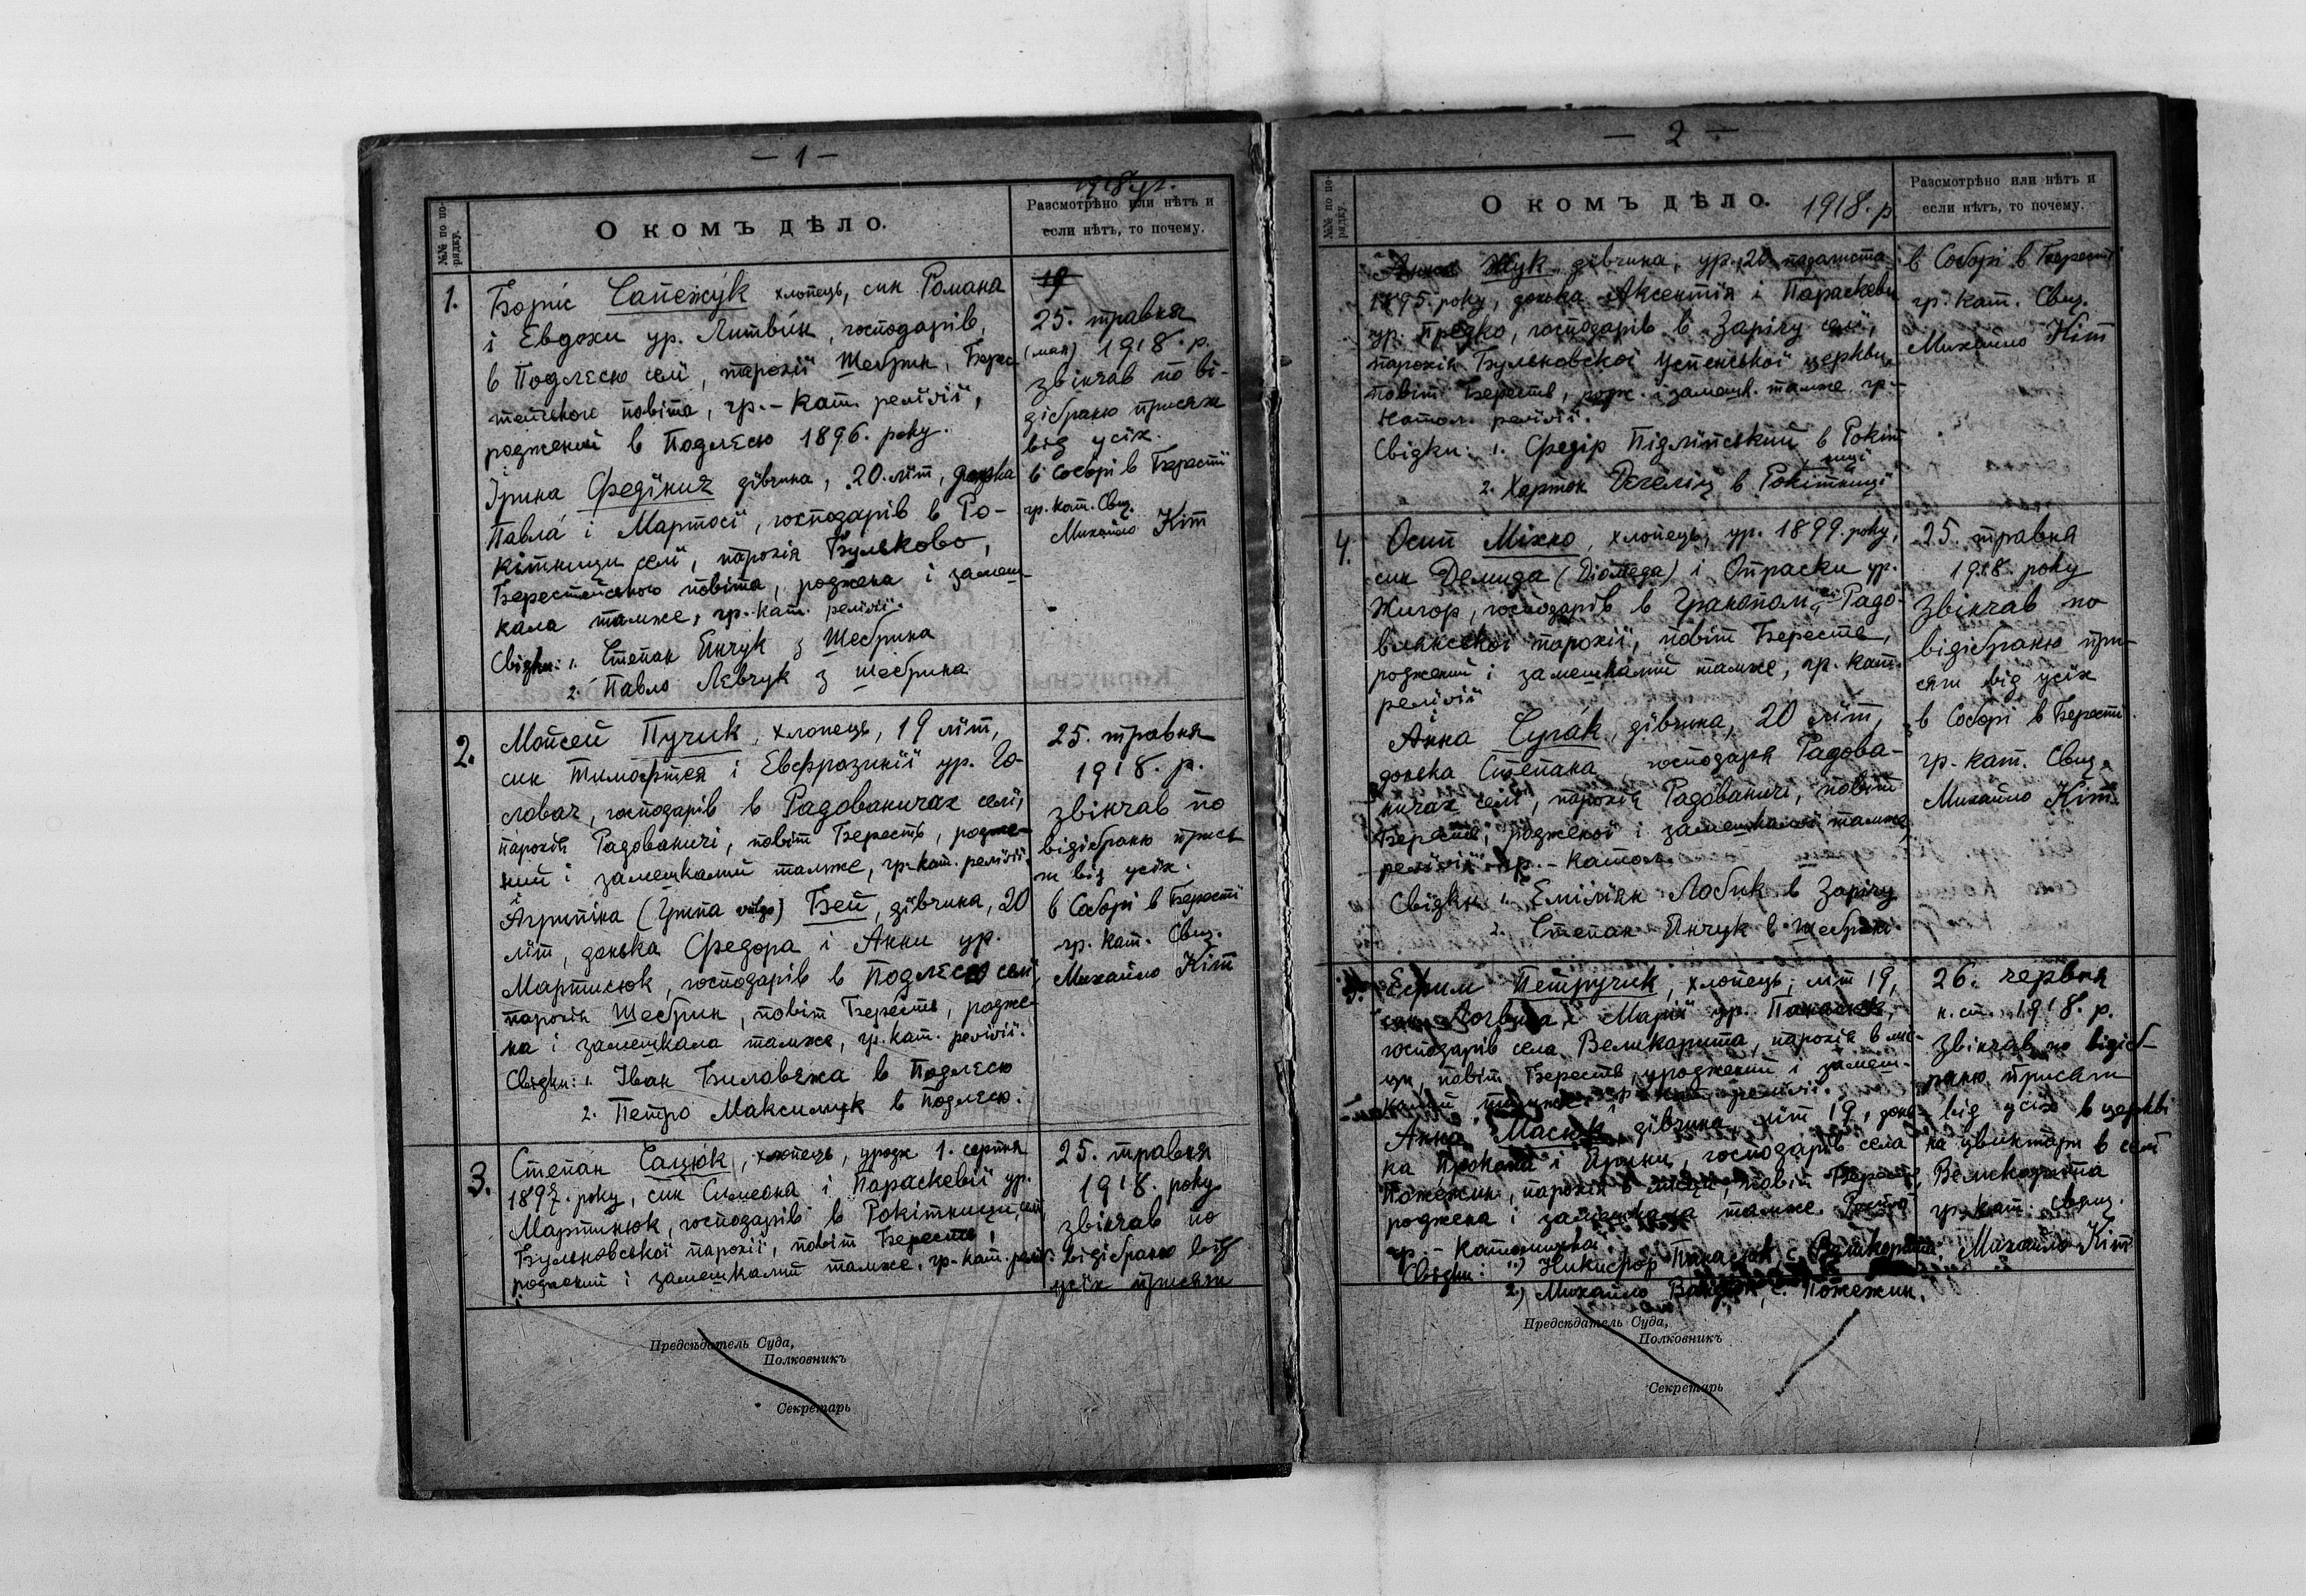 — 1 —
1918 р.
№№ по по-
рядку.
О КОМЪ ДѢЛО.
Разсмотрѣно или нѣтъ и
если нѣтъ, то почему.
1.
Боріс Сапежук хлопець, син Романа
і Евдохи ур. Литвін, господарів,
в Подлєсю селї, парохії Шебрин, Берес
тейського повіта, гр.-кат. релїґії,
роджений в Подлєсю 1896. року.
і
Ірина Федїнич дівчина, 20. лїт, донька
Павла і Мартосї, господарів в Ро-
кітници селї, парохія Бульково,
Берестейського повіта, роджена і замеш-
кала тамже, гр.-кат. релїґії.
Свідки: 1. Степан Янчук з Шебрина
2. Павло Лєвчук з Шебрина
19
25. травня
(мая) 1918. р.
звінчав по ві-
дібраню присяги
від усїх.
в Соборі в Берестї
гр. кат. Свящ.
Михайло Кіт
2.
Мойсей Пучик, хлопець, 19 лїт,
син Тимофтея і Евфразинїї ур. Го-
ловач, господарів в Радованичах селї,
парохія Радованичі, повіт Бересть, родже-
ний і замешкалий тамже, гр.-кат. релїґії.
і
Агрипіна (Гриппа vulgo) Бей, дівчина, 20
лїт, донька Федора і Анни ур.
Мартисюк, господарів в Подлєсю селї
парохія Шебрин, повіт Бересть, родже-
на і замешкала тамже, гр. кат. релїґії.
Свідки: 1. Іван Биловежа в Подлєсю
2. Петро Максимук в Подлєсю.
25. травня
1918. р.
звінчав по
відібраню прися
ги від усїх.
в Соборі в Берестї
гр. кат. Свящ.
Михайло Кіт
3.
Степан Сацюк, хлопець, уродж 1. серпня
1897. року, син Симеона і Параскевії ур.
Мартинюк, господарів в Рокітници, селї,
Бульковської парохії, повіт Бересть,
роджений і замешкалий тамже, гр.-кат. релїґ.
і
25. травня
1918. року
звінчав по
відібраню від
усїх присяги
Предсѣдатель Суда,
Полковникъ
Секретарь
— 2 —
№№ по по-
рядку.
О КОМЪ ДѢЛО.
1918. р.
Разсмотрѣно или нѣтъ и
если нѣтъ, то почему.
Анна Жук дівчина, ур. 20. падолиста
1895. року, донька Аксентія і Параскеви
ур. Предко, господарів в Зарічу селї,
парохія Бульковскої Успенської церкви,
повіт Бересть, родж. і замешк. тамже гр.-
катол. релїґії.
Свідки: 1. Федір Підлїпський в Рокіт
ниці
2. Харитон Дегелїц в Рокітници
в Соборі в Берестї
гр. кат. Свящ.
Михайло Кіт
4.
Осип Міхно, хлопець, ур. 1899. року,
син Демида (Діомеда) і Опраски ур.
Жигор, господарів в Гранополі Радо-
ванскої парохії, повіт Бересте,
роджений і замешкалий тамже, гр. кат.
релїґії
і
Анна Сучак, дівчина, 20 лїт,
донька Степана господаря Радова-
ничах селї, парохія Радованичі, повіт
Бересте, родженої і замешкалої тамже
релїґії гр.-катол.
Свідки 1. Емілїян Лобик в Зарічу
2. Степан Янчук в Шебрині.
25. травня
1918. року
Звінчав по
відібраню при-
сяги від усїх
в Соборі в Берестї
гр.-кат. Свящ.
Михайло Кіт.
5.
Ефим Петручик, хлопець, лїт 19,
син Логвина і Марії ур. Панасюк,
господарів села Великорита, парохія в міс-
ци, повіт Бересть, уроджений і замеш-
калий тамже гр. кат. релїґії.
і
Анна Масюк, дівчина, лїт 19, донь-
ка Прокопа і Ірини, господарів села
Пожежин, парохія в місци, повіт Бересте,
роджена і замешкала тамже.
гр.-католицкої.
Свідки: 1.) Никифор Панасюк с. Великорита.
2.) Михайло с. Пожежин.
26. червня
н. ст. 1918. р.
Звінчав по відіб-
раню присяги
від усїх в церкві
на цвинтари в селї
Великорита
гр. кат. свящ.
Михайло Кіт
Предсѣдатель Суда,
Полковникъ
Секретарь